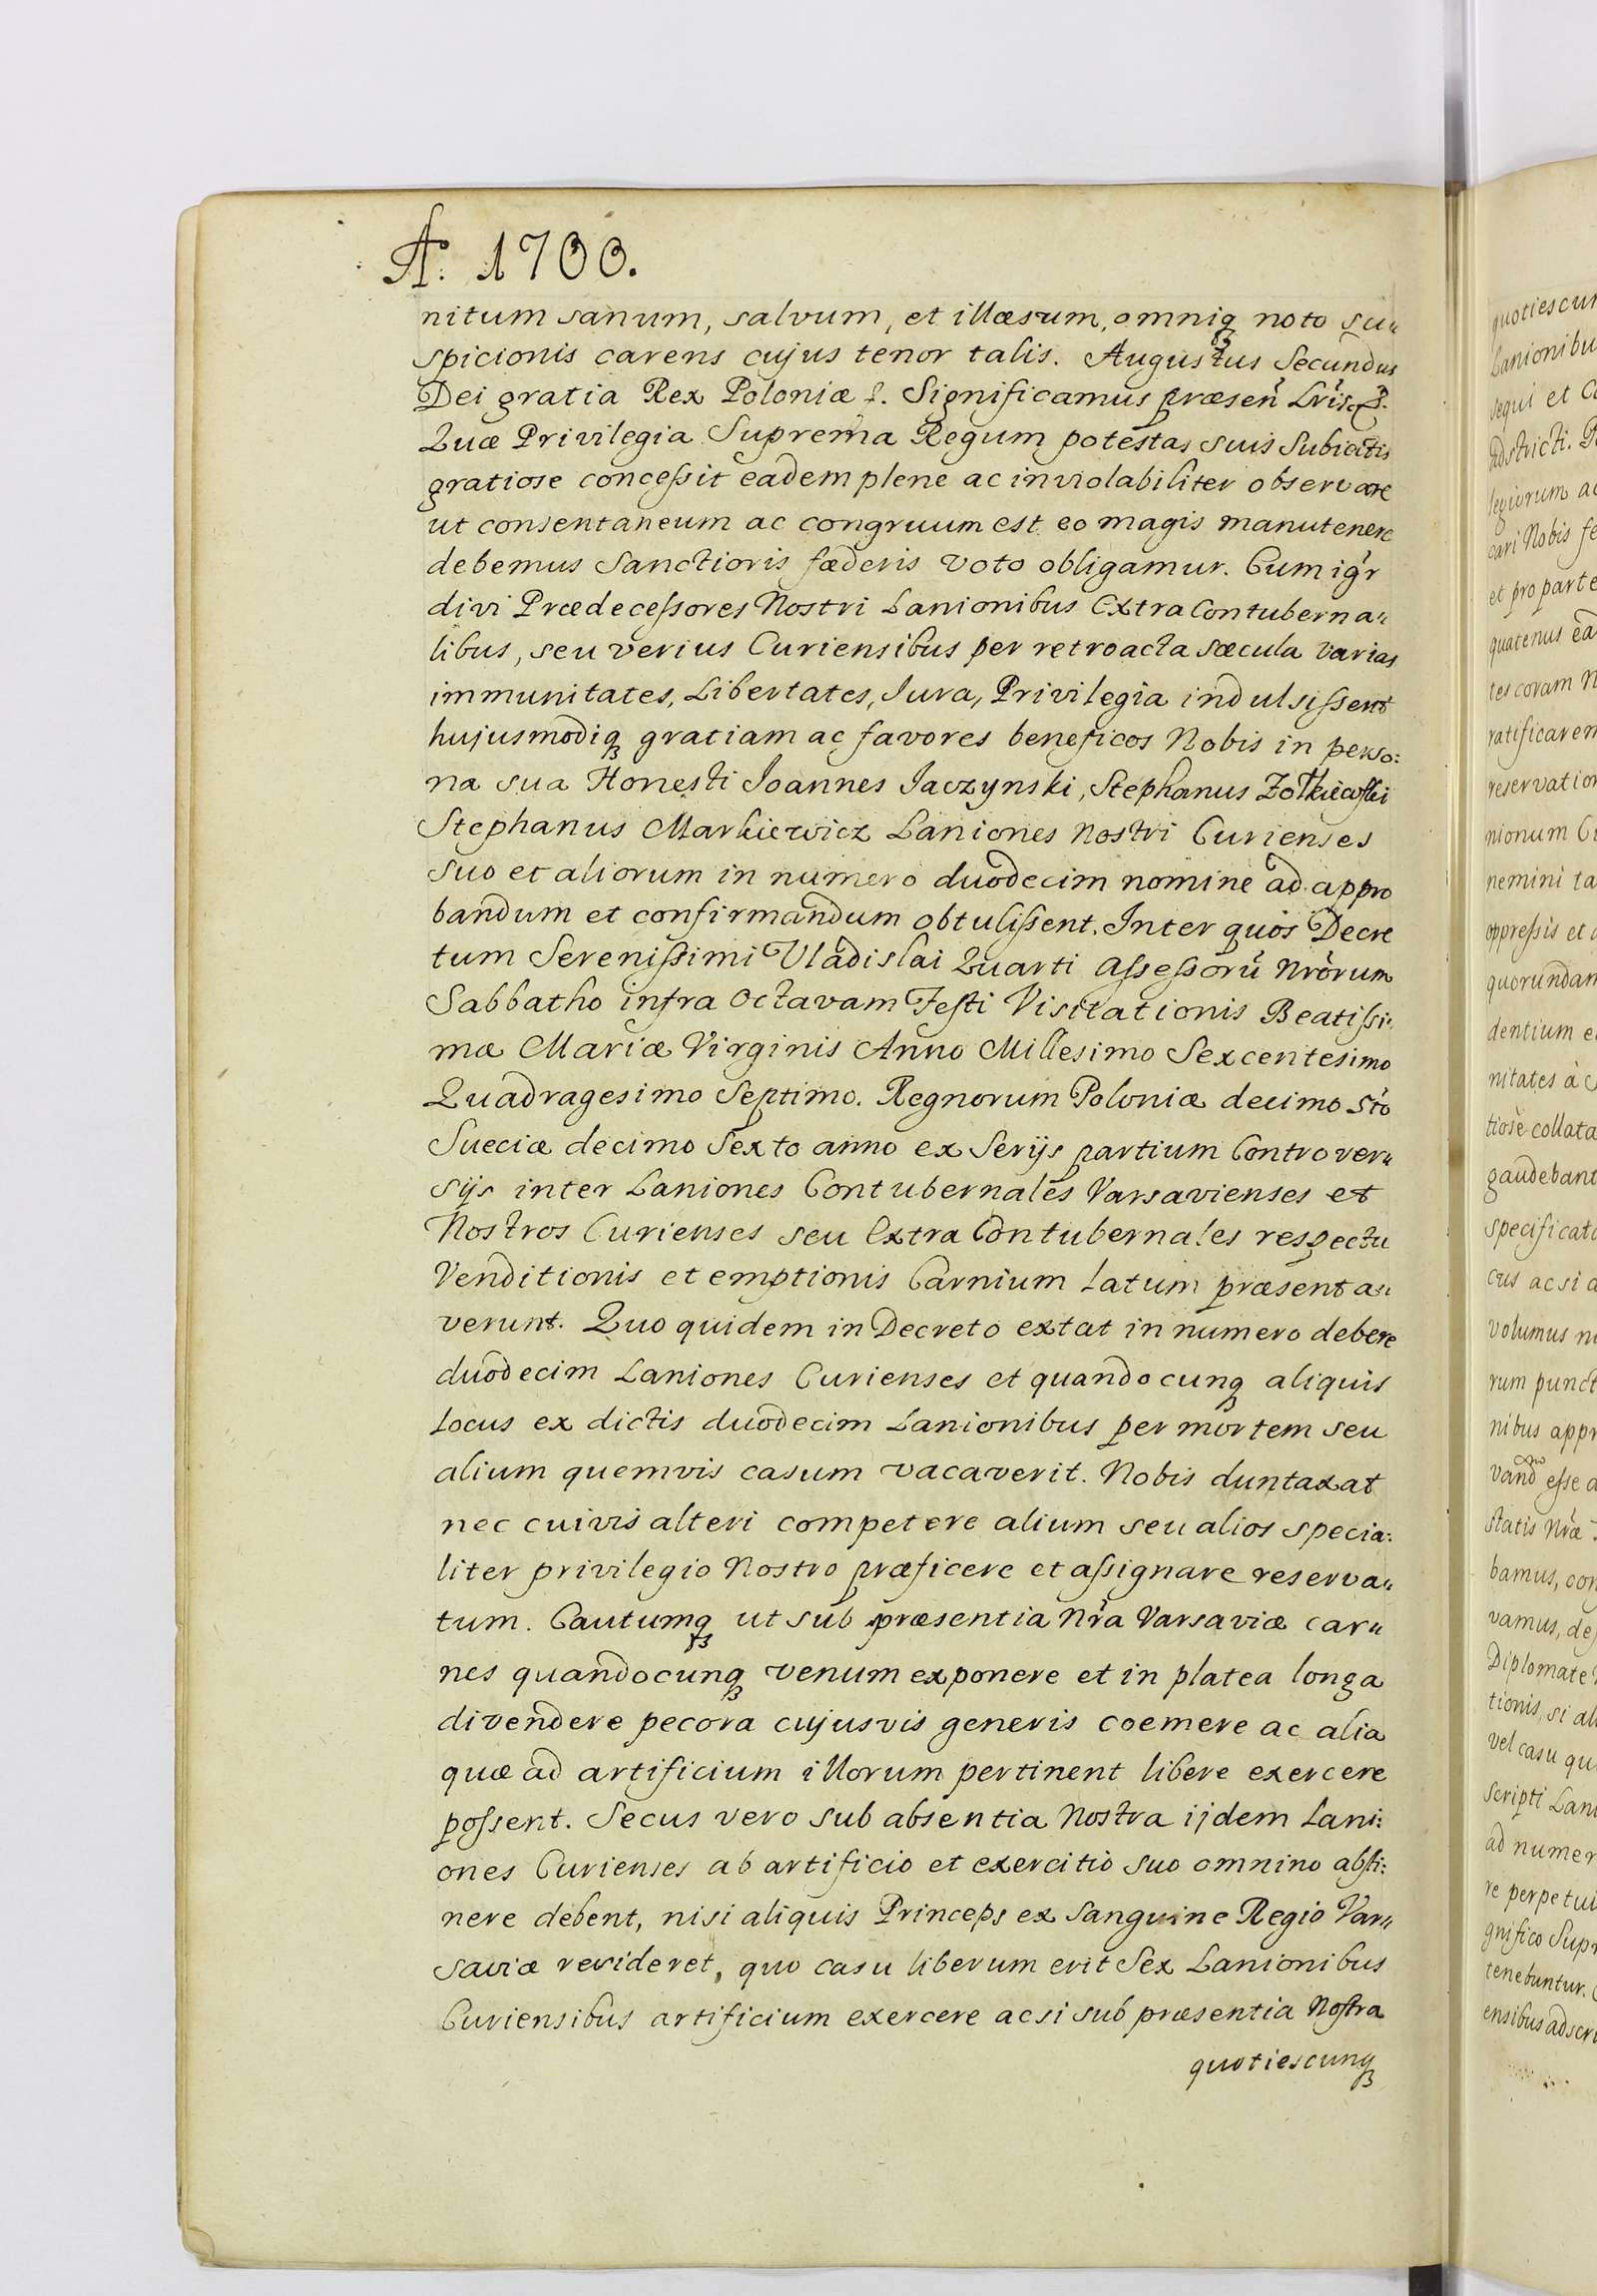 Aо. 1700.
nitum sanum, salvum, et illæsum, omniq; noto su„
spicionis carens cujus tenor talis. Augustus Secundus
Dei gratia Rex Poloniæ &. Significamus præsen̈ Lr̃is &.
Quæ Privilegia Suprema Regum potestas suis Subiectis
gratiose concessit eadem plene ac inviolabiliter observare
ut consentaneum ac congruum est eo magis manutenere
debemus Sanctioris fœderis voto obligamur. Cum igr̃
divi Prædecessores Nostri Lanionibus Extra Contuberna„
libus, seu verius Curiensibus per retroacta sæcula varias
immunitates, Libertates, Iura, Privilegia indulsissent
hujusmodiq; gratiam ac favores beneficos Nobis in perso:
na sua Honesti Ioannes Iaczynski, Stephanus Zołkiewski
Stephanus Markiewicz Laniones Nostri Curienses
suo et aliorum in numero duodecim nomine ad appro
bandum et confirmandum obtulissent. Inter quos Decre
tum Serenissimi Vladislai Quarti Assessorũ Nr̃orum
Sabbatho infra Octavam Festi Visitationis Beatissi„
mæ Mariæ Virginis Anno Millesimo Sexcentesimo
Quadragesimo Septimo. Regnorum Poloniæ decimo Sto
Sueciæ decimo Sexto anno ex Serijs partium Controver„
sijs inter Laniones Contubernales Varsavienses et
Nostros Curienses seu Extra Contubernales respectu
Venditionis et emptionis Carnium latum præsenta„
verunt. Quo quidem in Decreto extat in numero debere
duodecim Laniones Curienses et quandocunq; aliquis
Locus ex dictis duodecim Lanionibus per mortem seu
alium quemvis casum vacaverit. Nobis duntaxat
nec cuivis alteri competere alium seu alios specia:
liter privilegio Nostro præficere et assignare reserva„
tum. Cautumq; ut sub præsentia Nr̃a Varsaviæ car„
nes quandocunq; venum exponere et in platea longa
divendere pecora cujusvis generis coemere ac alia
quæ ad artificium illorum pertinent libere exercere
possent. Secus vero sub absentia Nostra ijdem Lani:
ones Curienses ab artificio et exercitio suo omnino absti:
nere debent, nisi aliquis Princeps ex Sanguine Regio Var„
saviæ resideret, quo casu liberum erit Sex Lanionibus
Curiensibus artificium exercere acsi sub præsentia Nostra
quotiescunq;